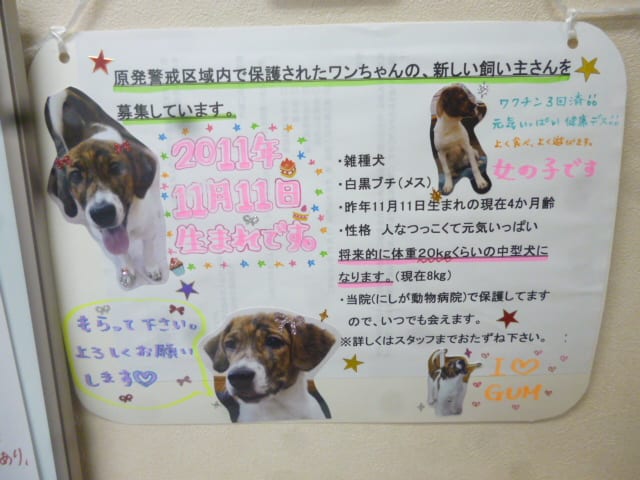 原発警戒区域内で保護されたワンちゃんの、新しい飼い主さんを
募集しています。
2011年
11月11日
生まれです。
ワクチン3回済
元気いっぱい健康デス!!
よく食べ、よく遊びます。
女の子です
・雑種犬
・白黒ブチ(メス)
・昨年11月11日生まれの現在4か月齢
・性格 人なつっこくて元気いっぱい
将来的に体重20kgくらいの中型犬に
なります。(現在8kg)
・当院(にしが動物病院)で保護してます
ので、いつでも会えます。
※詳しくはスタッフまでおたずね下さい。
もらって下さい。
よろしくお願い
します♡
I ♡
GUM
あり、